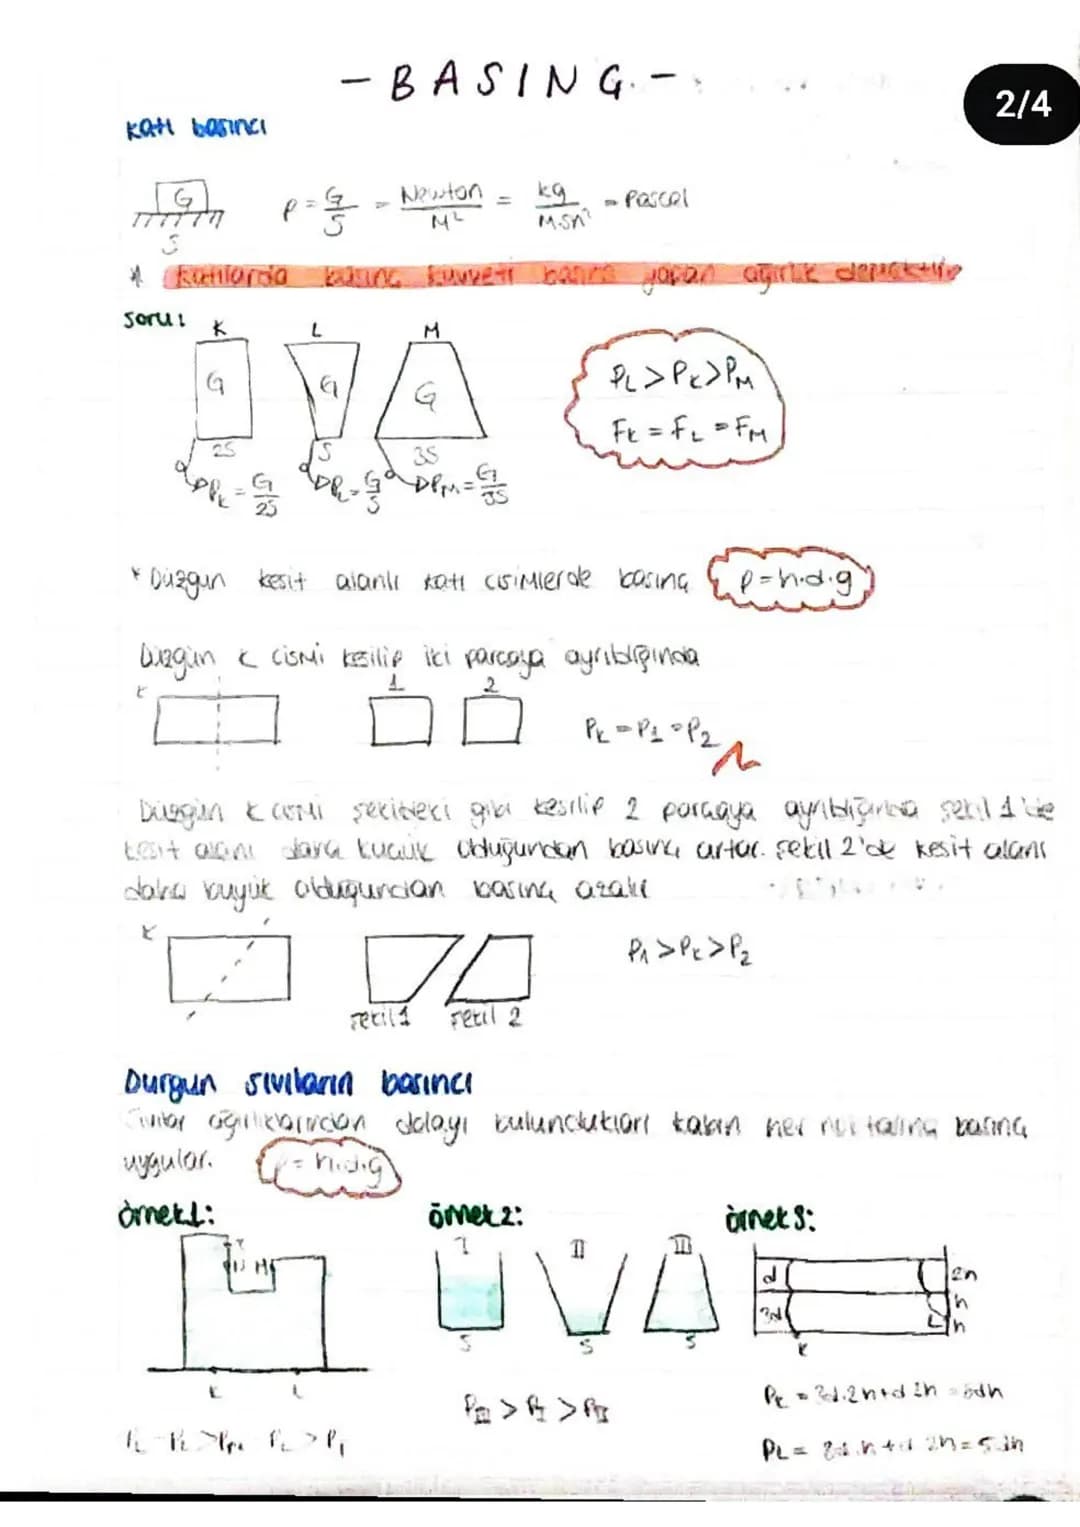 - BASINÇ -
2/4
Katı basıncı
G
S
P = G/S = Newton/M² = kg/M.sn² = Pascal
* Katılarda basınç kuvveti basınç yapan ağırlık demektir
Soru:
K L M
G G G
2S S 3S
PK = G/2S PL = G/S PM = G/3S
PL > PK > PM
FK = FL = FM
* Düzgün kesit alanlı katı cisimlerde basınç P=h.d.g
Düzgün K cismi kesilip iki parçaya ayrıldığında
K 1 2
PK = P1 = P2
Düzgün K cismi şekildeki gibi kesilip 2 parçaya ayrıldığında şekil 1'de
kesit alanı daha küçük olduğundan basınç artar. Şekil 2'de kesit alanı
daha büyük olduğundan basınç azalır
K
P1 > PK > P2
şekil 1 şekil 2
Durgun sıvıların basıncı
Sıvılar ağırlıklarından dolayı bulundukları kabın her noktasına basınç
uygular. P = h.d.g
örnek 1: örnek 2: örnek 3:
I II III
d 2h
3d h
L h
S S S
K
K L
PIII > PI > PII
PL = 3d.h + d 2h = 5dh